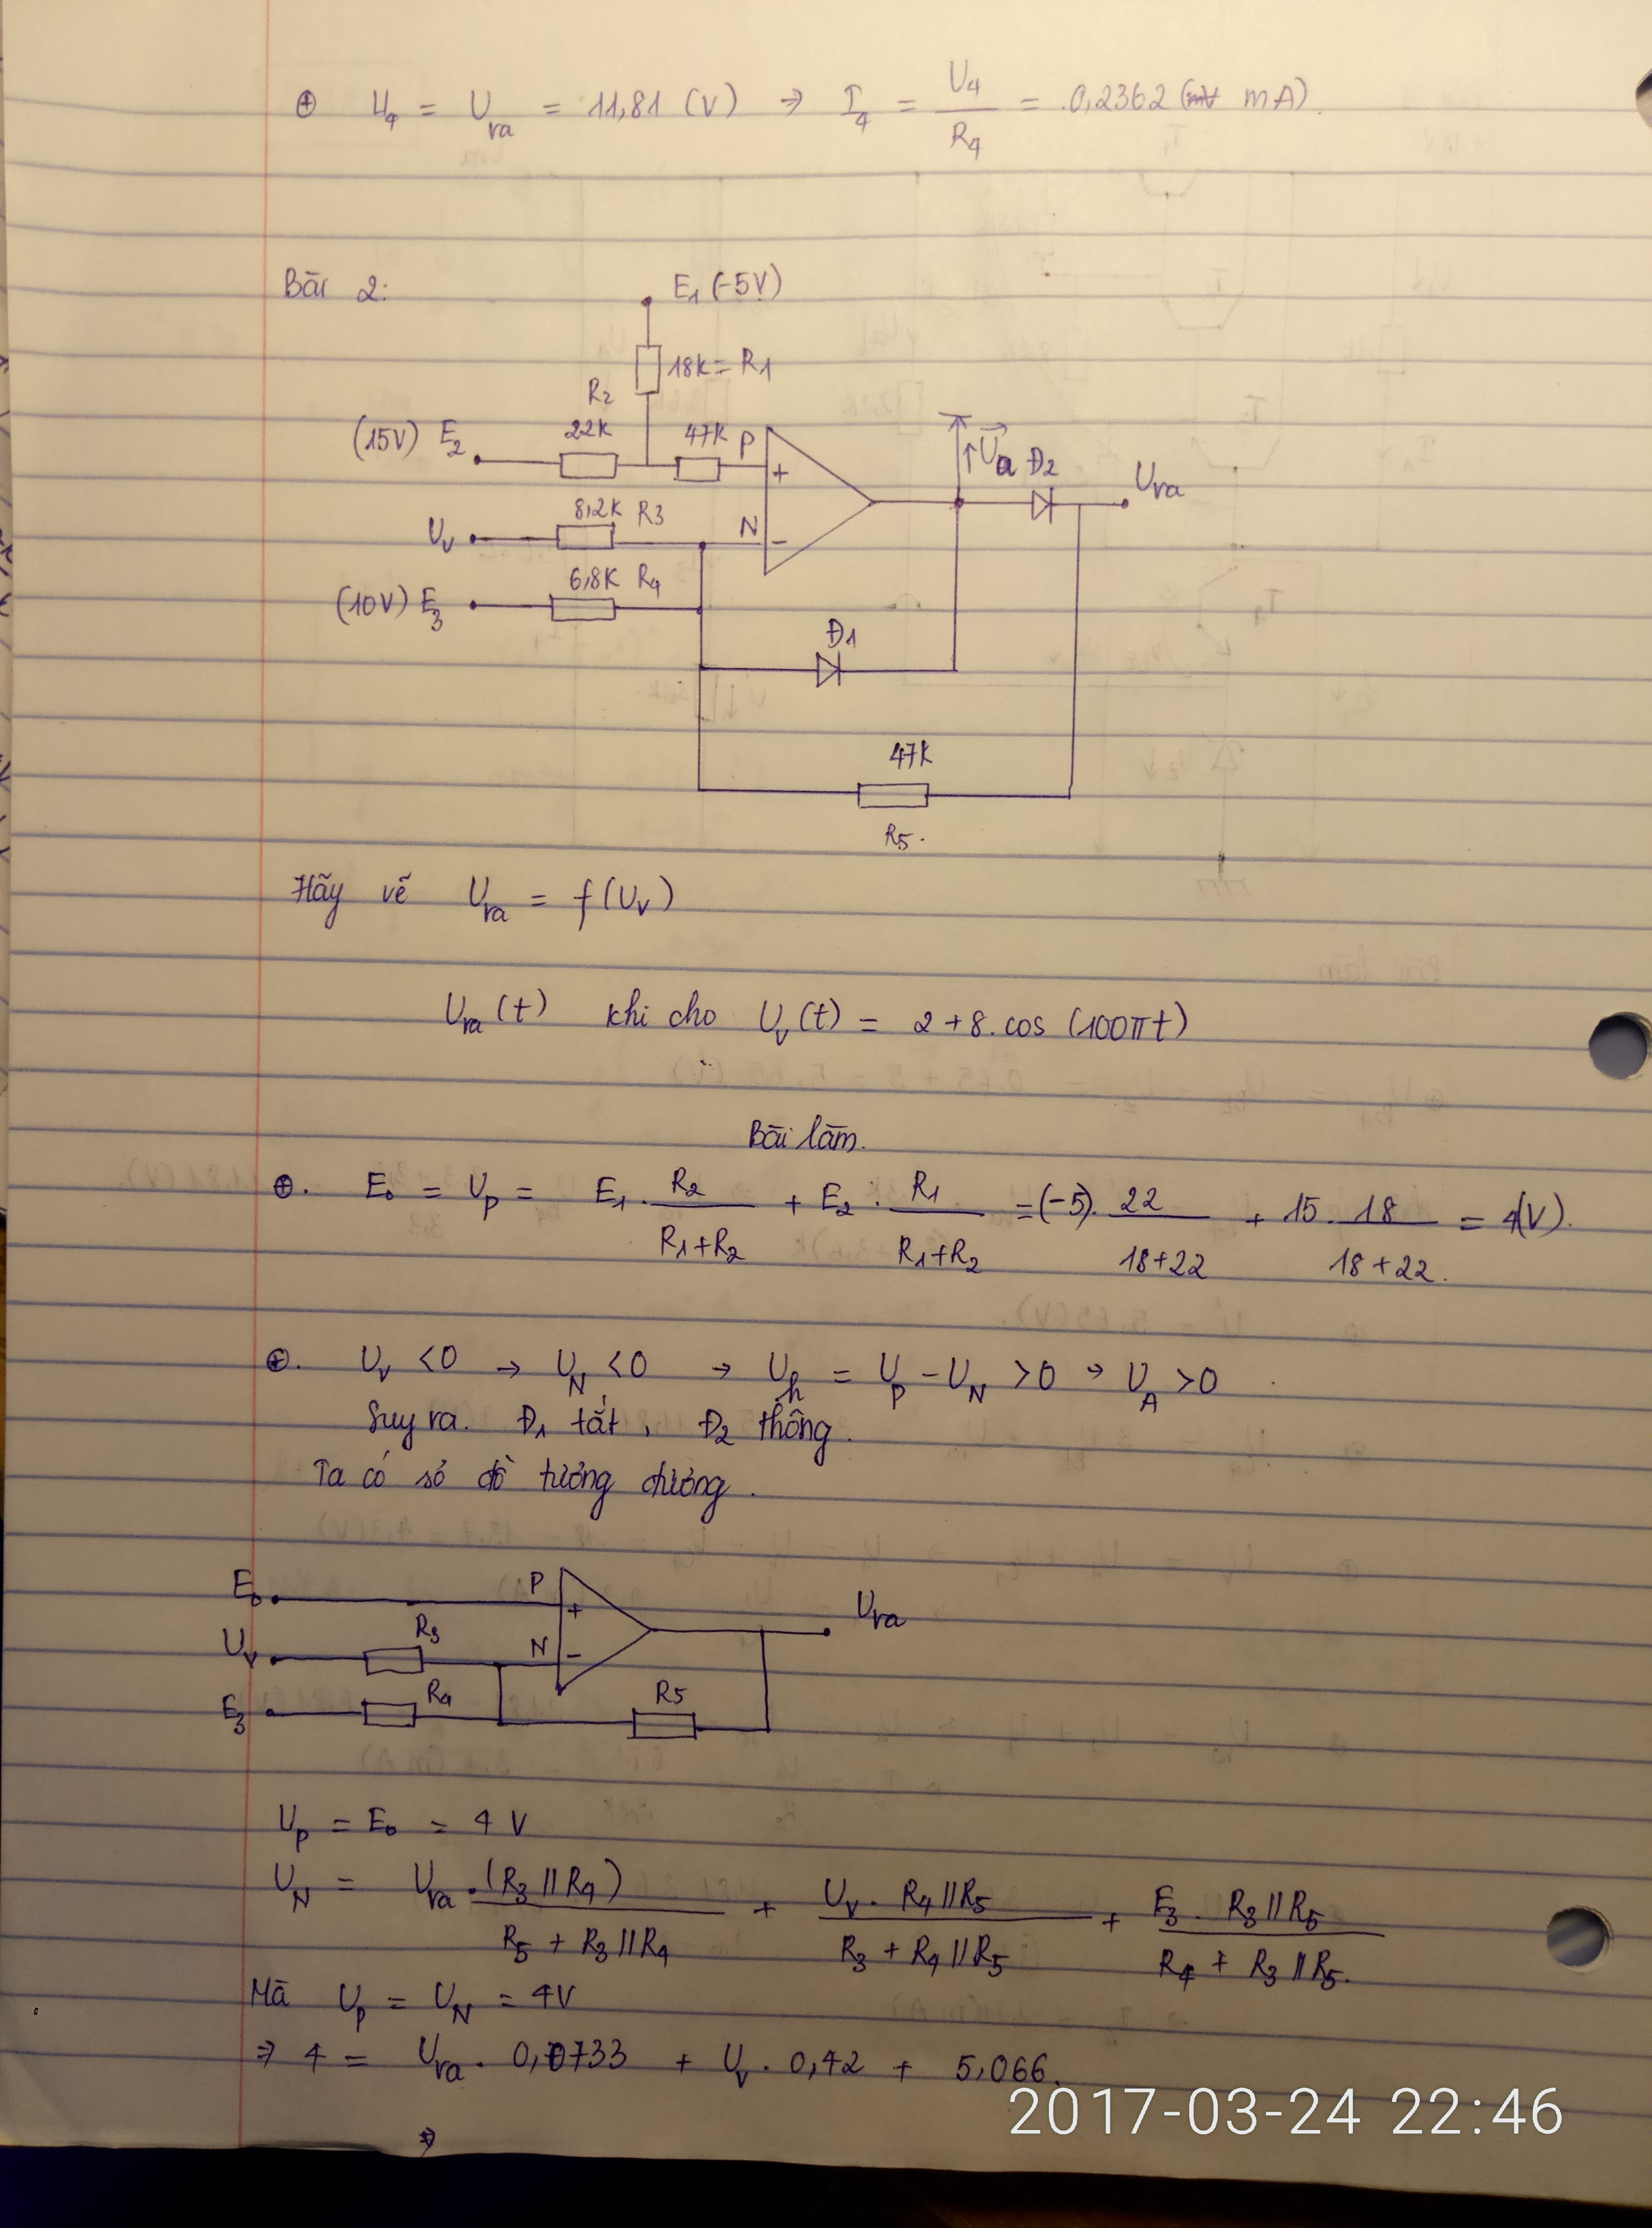 ⊕ U₄ = U_ra = 11,81 (V) ⇒ I₄ = U₄/R₄ = 0,2362 (mA).
Bài 2:
E₁ (-5V)
18K = R1
R₂
(15V) E₂ 22K 47K P +
U_a Đ2 U_ra
8,2K R3
U_v N -
6,8K R4
(10V) E₃
Đ1
47K
R5.
Hãy vẽ U_ra = f(U_v)
U_ra(t) khi cho U_v(t) = 2 + 8.cos(100πt)
Bài làm.
⊕. E₀ = U_p = E₁ . R₂/(R₁+R₂) + E₂ . R₁/(R₁+R₂) = (-5). 22/(18+22) + 15. 18/(18+22) = 4(V).
⊕. U_v <0 → U_N <0 → U_h = U_p - U_N >0 → U_A >0
Suy ra. Đ₁ tắt, Đ₂ thông.
Ta có sơ đồ tương đương.
E₀ P +
U_ra
U_v R3 N -
E₃ R4 R5
U_p = E₀ = 4 V
U_N = U_ra . (R₃ // R₄)/(R₅ + R₃ // R₄) + U_v . R₄ // R₅/(R₃ + R₄ // R₅) + E₃ . R₃ // R₅/(R₄ + R₃ // R₅.)
Mà U_p = U_N = 4V
⇒ 4 = U_ra . 0,0733 + U_v . 0,42 + 5,066.
2017-03-24 22:46
⇒